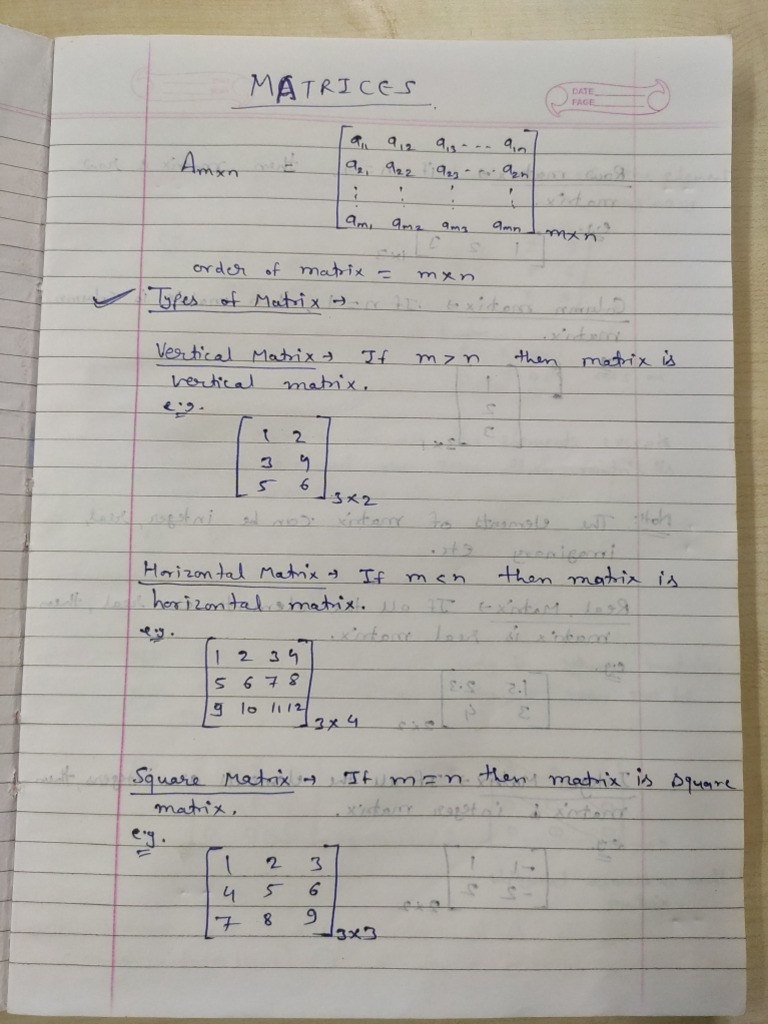 MATRICES
DATE
PAGE
Am×n = [a11 a12 a13 --- a1n
a21 a22 a23 --- a2n
⋮ ⋮ ⋮ ⋮
am1 am2 am3 amn] m×n
order of matrix = m×n
✓ Types of Matrix →
Vertical Matrix → If m > n then matrix is
vertical matrix.
e.g.
[1 2
3 4
5 6] 3×2
Horizontal Matrix → If m < n then matrix is
horizontal matrix.
e.g.
[1 2 3 4
5 6 7 8
9 10 11 12] 3×4
Square Matrix → If m = n then matrix is square
matrix.
e.g.
[1 2 3
4 5 6
7 8 9] 3×3